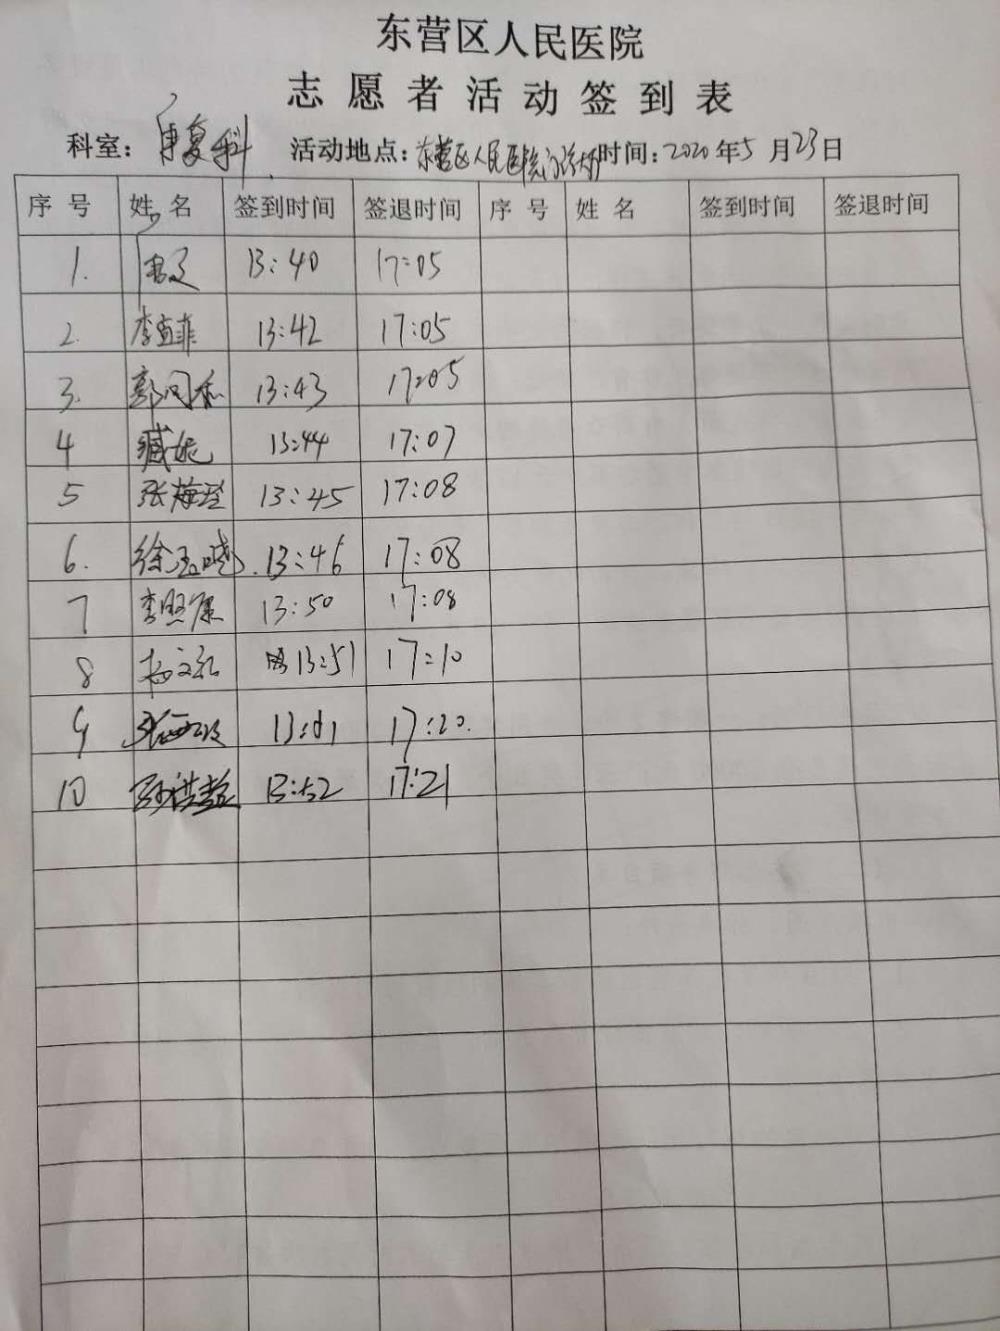 东营区人民医院
志愿者活动签到表
科室：康复科 活动地点：东营区人民医院门诊大厅 时间：2020年5月23日
序号 姓名 签到时间 签退时间 序号 姓名 签到时间 签退时间
1. 13:40 17:05
2. 李宜菲 13:42 17:05
3. 13:43 17:05
4 臧妮 13:44 17:07
5 张梅 13:45 17:08
6. 徐玉晓 13:46 17:08
7 李照康 13:50 17:08
8 13:51 17:10
9 17:20.
10 13:52 17:21